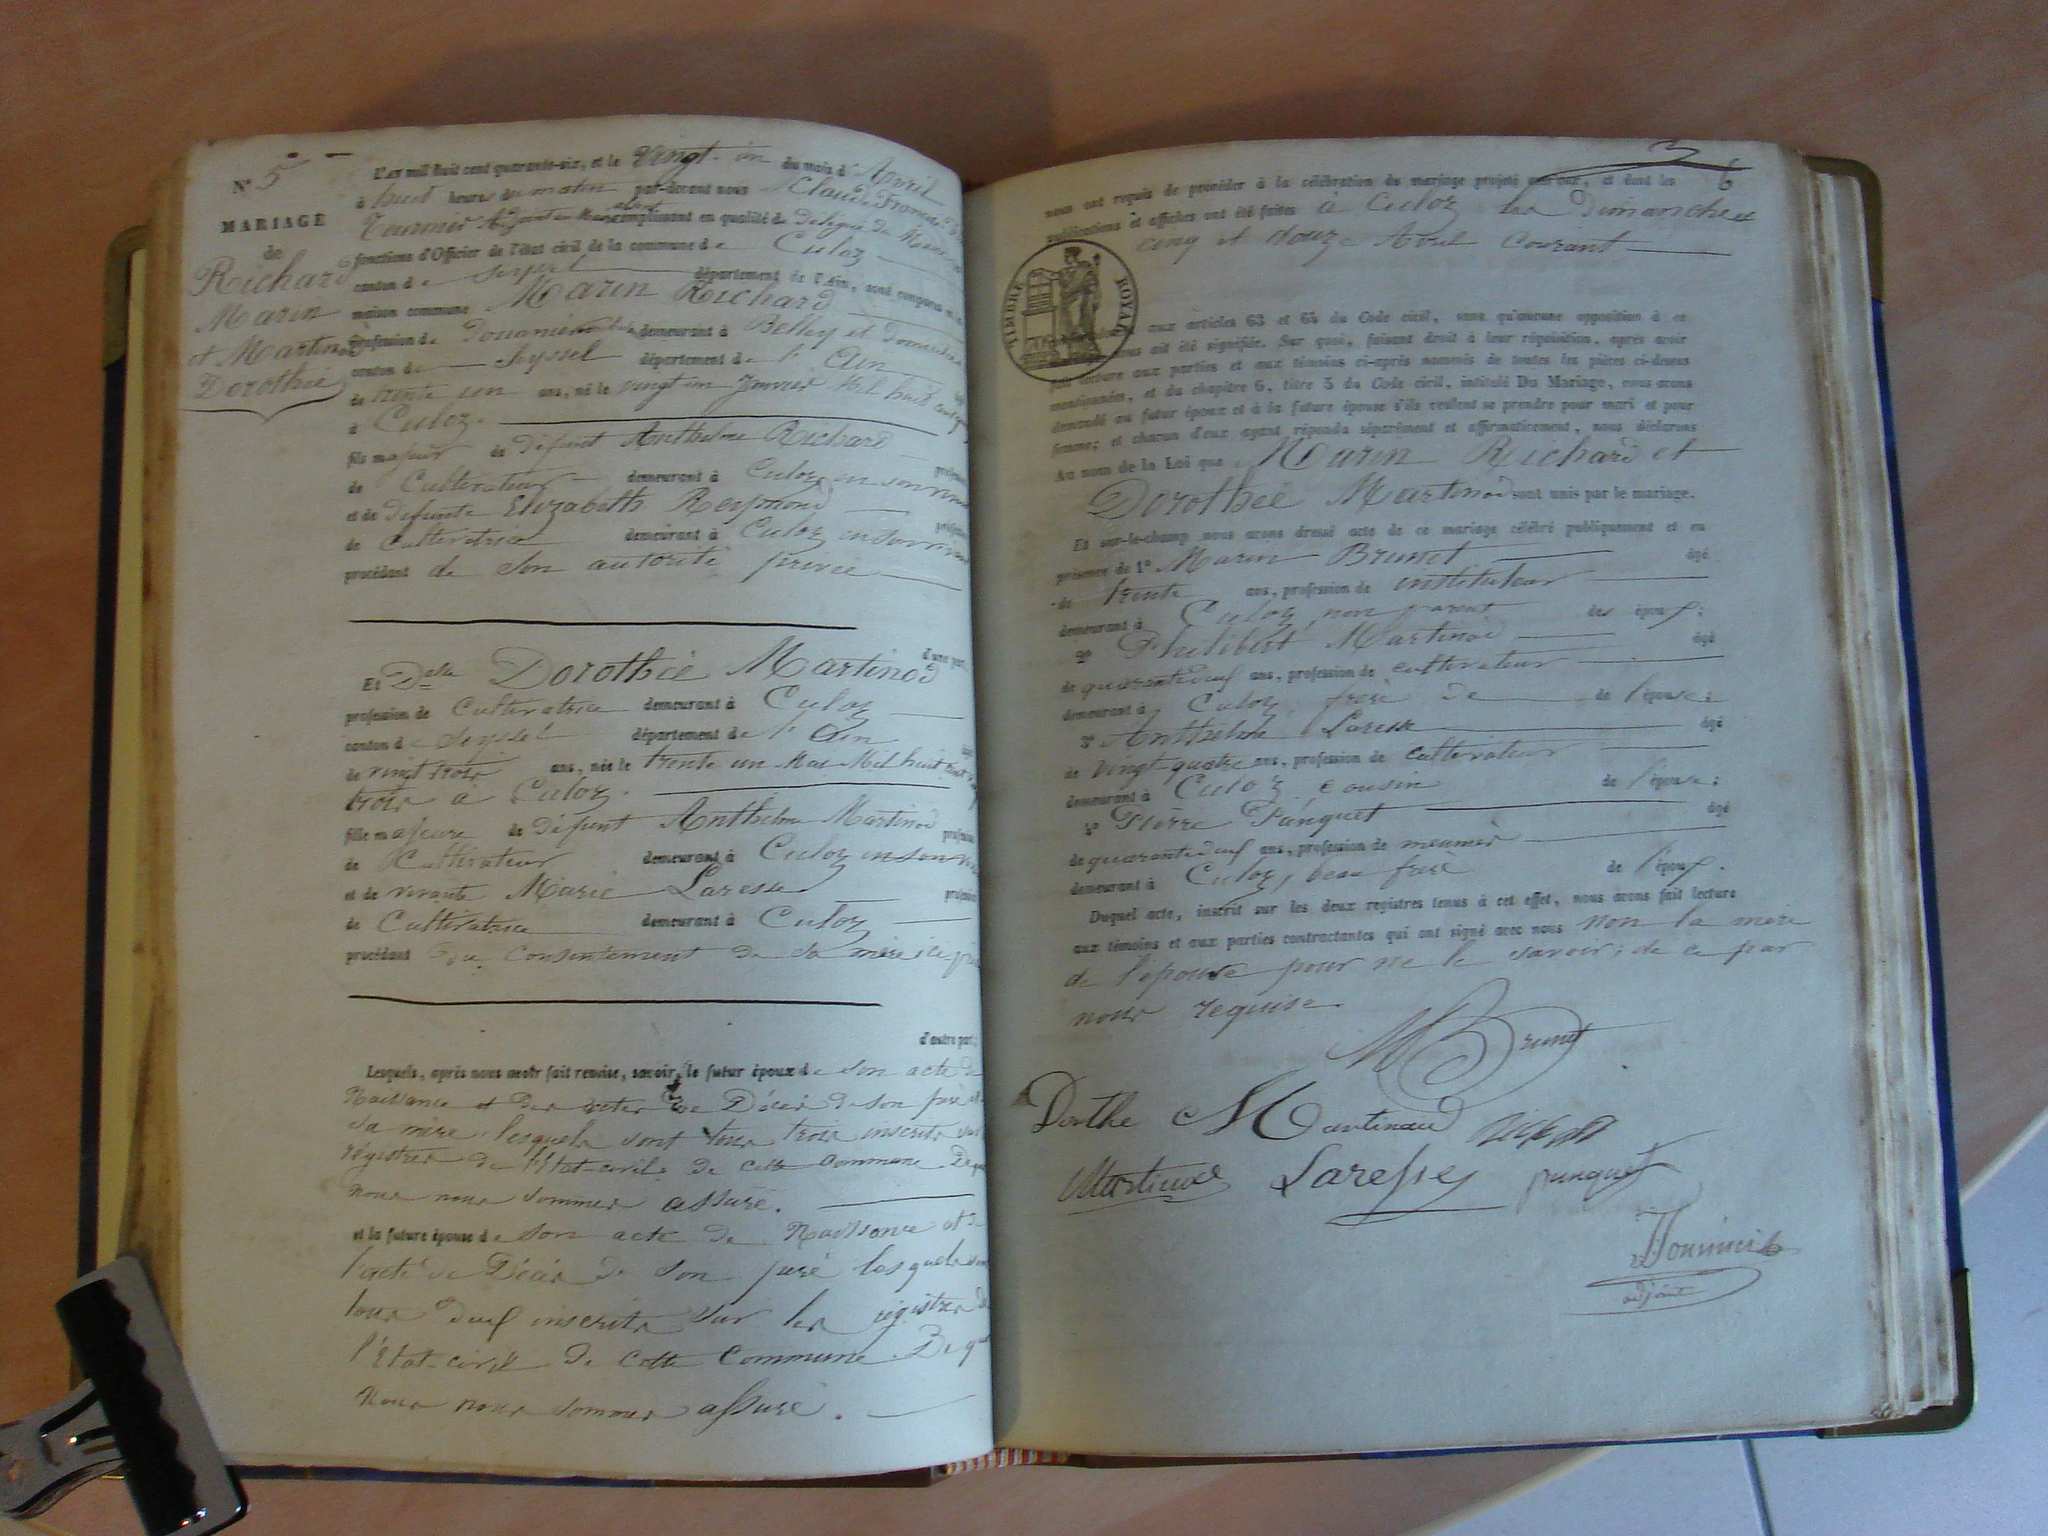 N° 5
MARIAGE
de
Richard
Marin
et Martinod
Dorothée
L'an mil huit cent quarante-six, et le Vingt-un du mois d'Avril
à huit heures du matin par-devant nous Claude François
Tournier Adjoint au Maire remplissant en qualité de délégué du Maire
fonctions d'Officier de l'état civil de la commune de Culoz
canton de Seyssel département de l'Ain, sont comparus en la
maison commune Marin Richard
profession de Douanier demeurant à Belley et Domicilié
canton de Seyssel département de l'Ain
de trente un ans, né le vingt un Janvier Mil huit cent quinze
à Culoz.
fils majeur de défunt Anthelme Richard profession
de Cultivateur demeurant à Culoz en son vivant
et de defunte Elizabeth Reymond profession
de Cultivatrice demeurant à Culoz en son vivant
procédant de son autorité privée
d'une part,
Et Delle Dorothée Martinod
profession de Cultivatrice demeurant à Culoz
canton de Seyssel département de l'Ain
de vingt trois ans, née le trente un Mai Mil huit cent vingt
trois à Culoz.
fille majeure de défunt Anthelme Martinod profession
de Cultivateur demeurant à Culoz en son vivant
et de vivante Marie Laresse profession
de Cultivatrice demeurant à Culoz
procédant du consentement de sa mère ici
d'autre part;
Lesquels, après nous avoir fait remise, savoir, le futur époux de son acte de
Naissance et des actes de Décès de son père et
sa mère lesquels sont tous trois inscrits sur
registres de l'Etat-civil de cette commune De quoi
nous nous sommes assuré.
et la future épouse de son acte de Naissance et de
l'acte de Décès de son père lesquels sont
tous deux inscrits sur les registres de
l'Etat-civil de cette Commune De quoi
nous nous sommes assuré.
3
6
nous ont requis de procéder à la célébration du mariage projeté entre eux, et dont les
publications et affiches ont été faites à Culoz les Dimanches
cinq et douze Avril courant
TIMBRE ROYAL
aux articles 63 et 64 du Code civil, sans qu'aucune opposition à ce
nous ait été signifiée. Sur quoi, faisant droit à leur réquisition, après avoir
fait lecture aux parties et aux témoins ci-après nommés de toutes les pièces ci-dessus
mentionnées, et du chapitre 6, titre 5 du Code civil, intitulé Du Mariage, nous avons
demandé au futur époux et à la future épouse s'ils veulent se prendre pour mari et pour
femme; et chacun d'eux ayant répondu séparément et affirmativement, nous déclarons
Au nom de la Loi que Marin Richard et
Dorothée Martinod sont unis par le mariage.
Et sur-le-champ nous avons dressé acte de ce mariage célébré publiquement et en
présence de 1° Marin Brunet âgé
de trente ans, profession de instituteur
demeurant à Culoz, non parent des époux;
2° Philibert Martinod âgé
de quarante deuf ans, profession de cultivateur
demeurant à Culoz, frere de de l'épouse;
3° Anthelme Laresse âgé
de vingt quatre ans, profession de cultivateur
demeurant à Culoz cousin de l'épouse;
4° Pierre Panguet âgé
de quarante deuf ans, profession de meunier
demeurant à Culoz, beau frere de l'époux.
Duquel acte, inscrit sur les deux registres tenus à cet effet, nous avons fait lecture
aux témoins et aux parties contractantes qui ont signé avec nous non la mère
de l'épouse pour ne le savoir; de ce par
nous requise.
M Brunet
Dorthe Martinaud
Martinod Laresse panguet
Tournier
adjoint